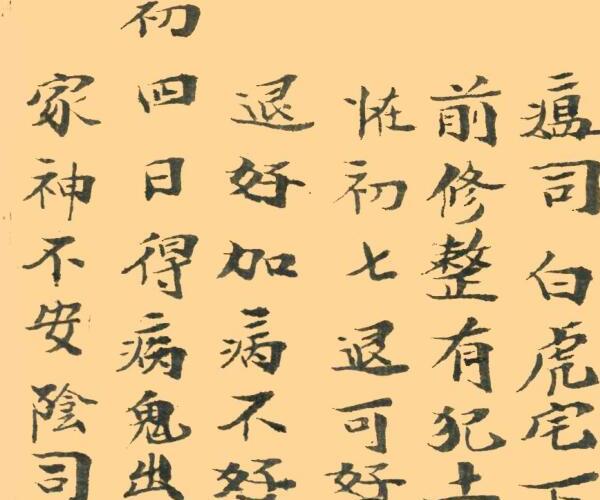 瘟司白虎宅下
前修整有犯土
怪初七退可好
退好加病不好
初四日得病鬼出
家神不安陰司